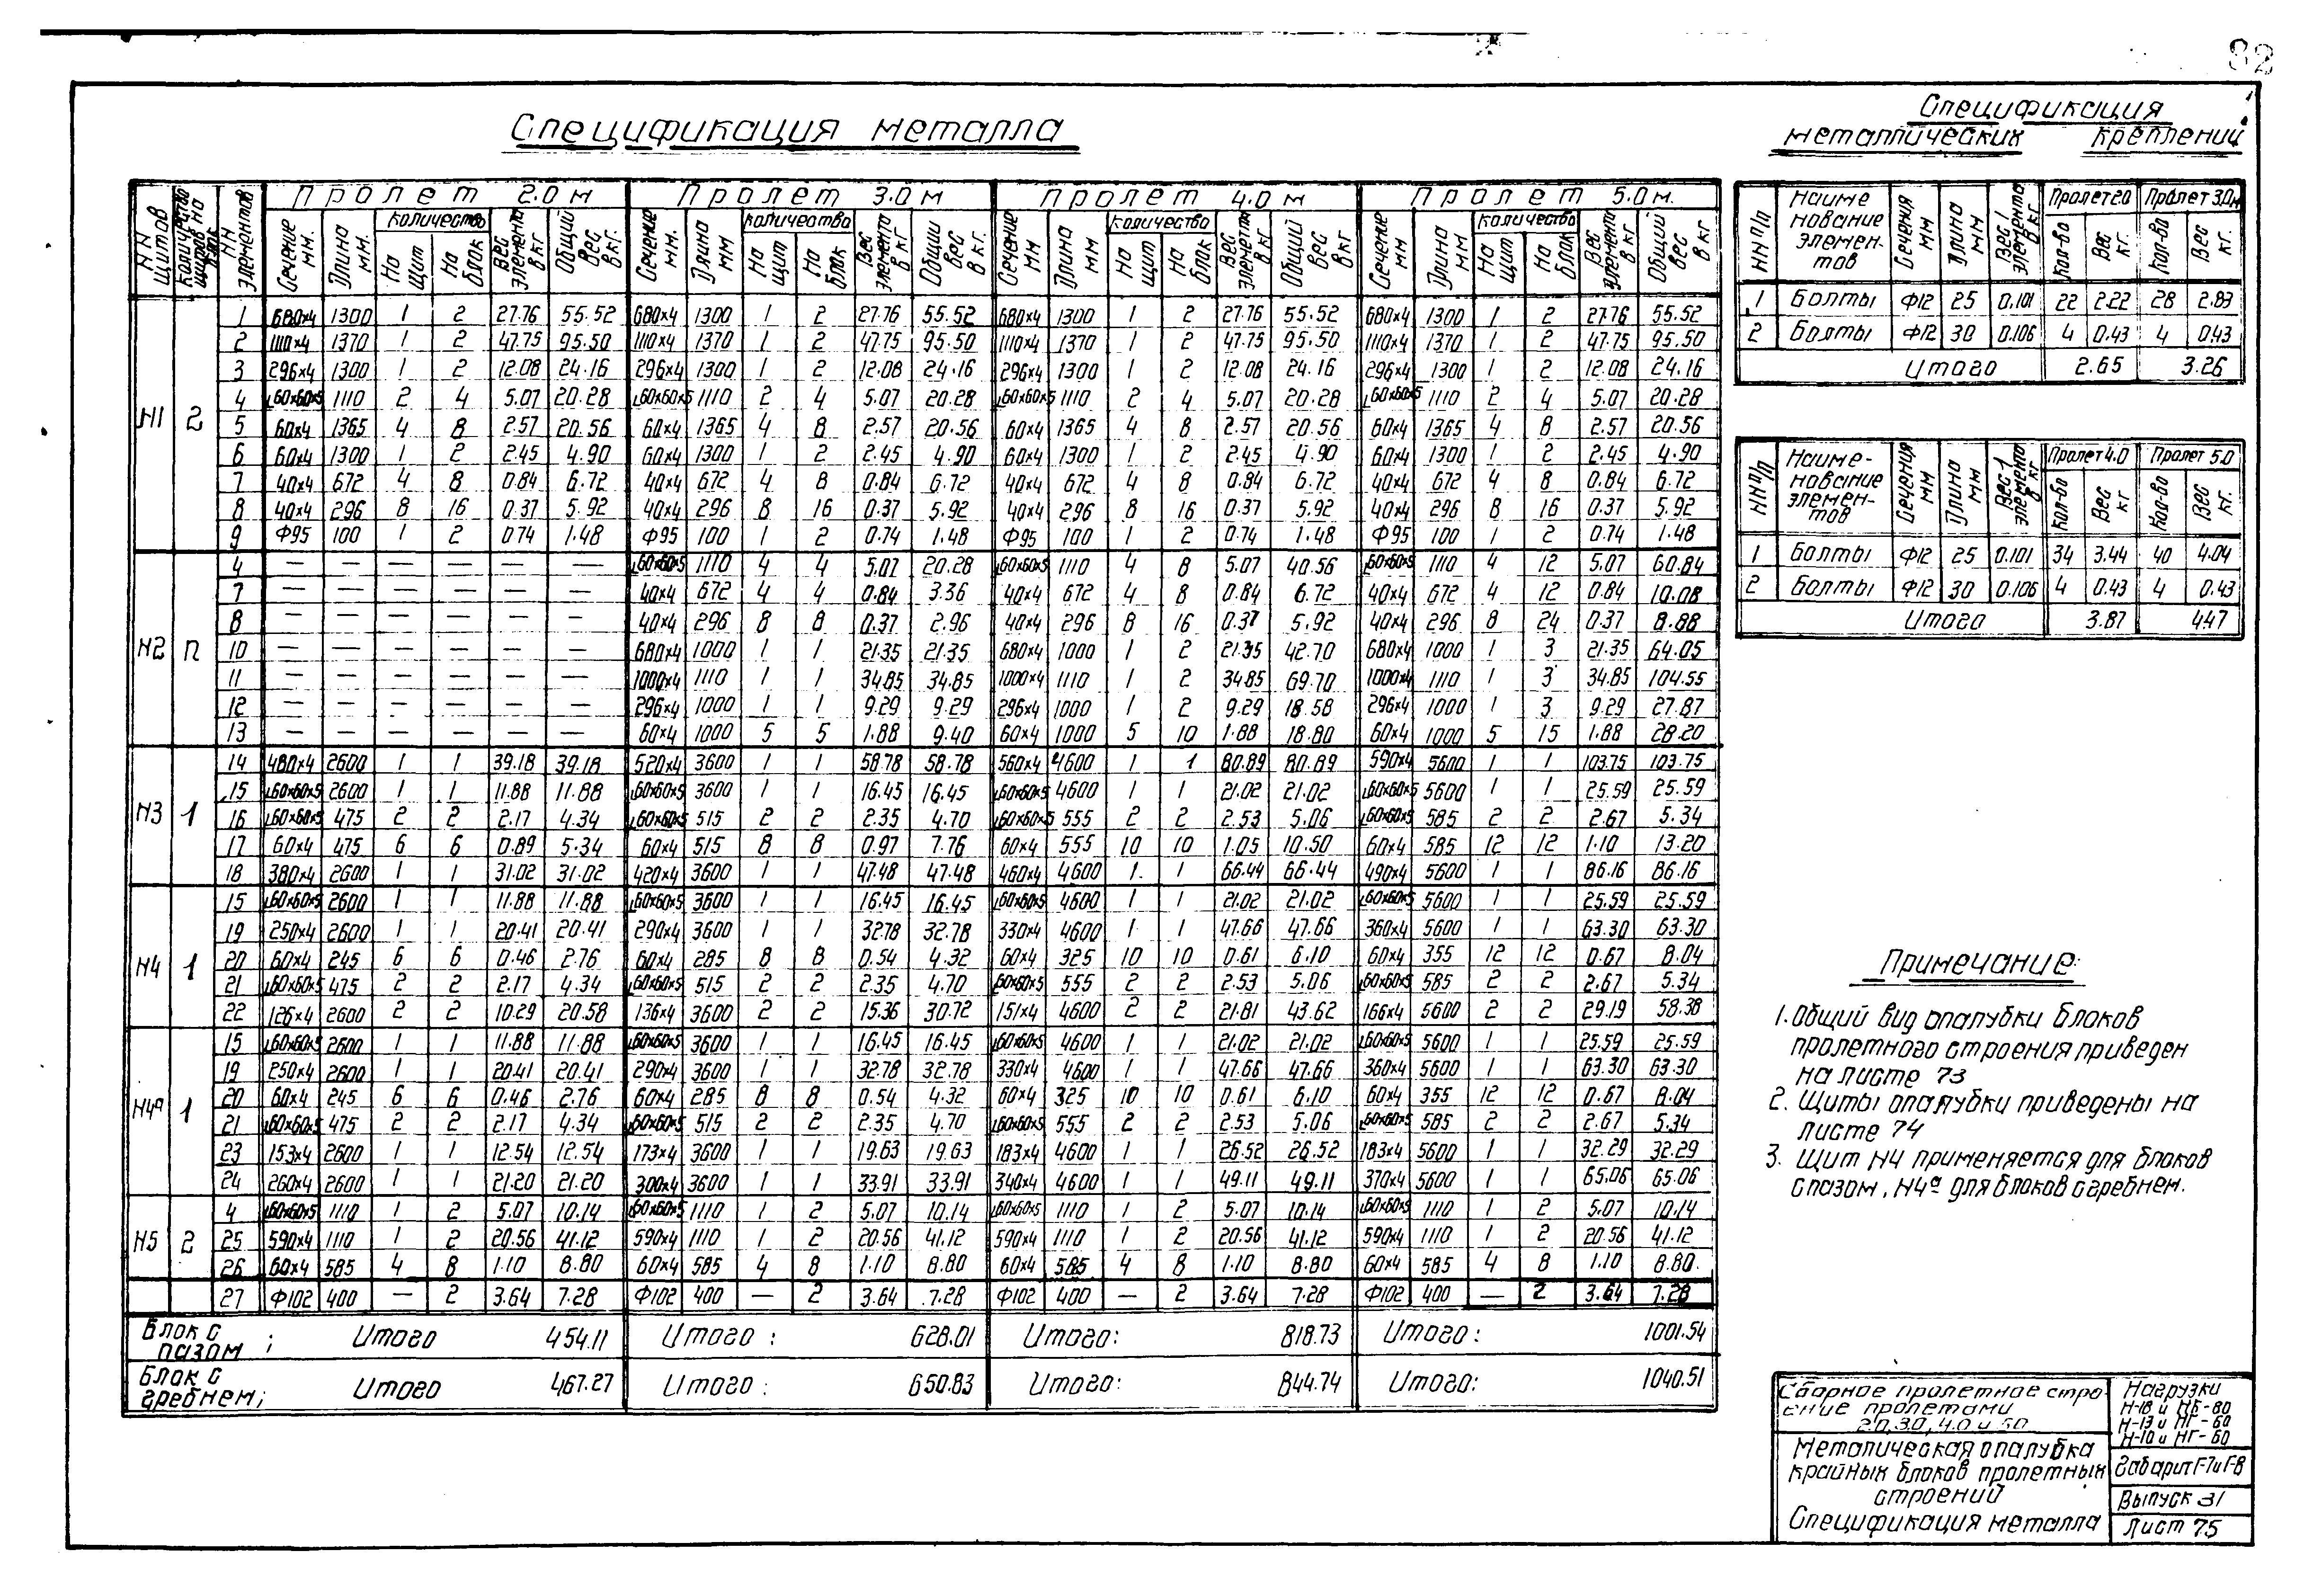 82
Спецификация металла
Спецификация
металлических креплений
NN щитов | Количество щитов на блок | NN элементов | Пролет 2.0 м | Пролет 3.0 м | Пролет 4.0 м | Пролет 5.0 м.
Сечение мм. | Длина мм. | количество На щит | На блок | Вес элемента в кг | Общий вес в кг. | Сечение мм. | Длина мм | количество На щит | На блок | Вес элемента в кг. | Общий вес в кг. | Сечение мм | Длина мм | количество На щит | На блок | Вес элемента в кг | Общий вес в кг. | Сечение мм | Длина мм | количество На щит | На блок | Вес элемента в кг | Общий вес в кг
N1 | 2
1 | 680x4 | 1300 | 1 | 2 | 27.76 | 55.52 | 680x4 | 1300 | 1 | 2 | 27.76 | 55.52 | 680x4 | 1300 | 1 | 2 | 27.76 | 55.52 | 680x4 | 1300 | 1 | 2 | 27.76 | 55.52
2 | 1110x4 | 1370 | 1 | 2 | 47.75 | 95.50 | 1110x4 | 1370 | 1 | 2 | 47.75 | 95.50 | 1110x4 | 1370 | 1 | 2 | 47.75 | 95.50 | 1110x4 | 1370 | 1 | 2 | 47.75 | 95.50
3 | 296x4 | 1300 | 1 | 2 | 12.08 | 24.16 | 296x4 | 1300 | 1 | 2 | 12.08 | 24.16 | 296x4 | 1300 | 1 | 2 | 12.08 | 24.16 | 296x4 | 1300 | 1 | 2 | 12.08 | 24.16
4 | L60x60x5 | 1110 | 2 | 4 | 5.07 | 20.28 | L60x60x5 | 1110 | 2 | 4 | 5.07 | 20.28 | L60x60x5 | 1110 | 2 | 4 | 5.07 | 20.28 | L60x60x5 | 1110 | 2 | 4 | 5.07 | 20.28
5 | 60x4 | 1365 | 4 | 8 | 2.57 | 20.56 | 60x4 | 1365 | 4 | 8 | 2.57 | 20.56 | 60x4 | 1365 | 4 | 8 | 2.57 | 20.56 | 60x4 | 1365 | 4 | 8 | 2.57 | 20.56
6 | 60x4 | 1300 | 1 | 2 | 2.45 | 4.90 | 60x4 | 1300 | 1 | 2 | 2.45 | 4.90 | 60x4 | 1300 | 1 | 2 | 2.45 | 4.90 | 60x4 | 1300 | 1 | 2 | 2.45 | 4.90
7 | 40x4 | 672 | 4 | 8 | 0.84 | 6.72 | 40x4 | 672 | 4 | 8 | 0.84 | 6.72 | 40x4 | 672 | 4 | 8 | 0.84 | 6.72 | 40x4 | 672 | 4 | 8 | 0.84 | 6.72
8 | 40x4 | 296 | 8 | 16 | 0.37 | 5.92 | 40x4 | 296 | 8 | 16 | 0.37 | 5.92 | 40x4 | 296 | 8 | 16 | 0.37 | 5.92 | 40x4 | 296 | 8 | 16 | 0.37 | 5.92
9 | Ф95 | 100 | 1 | 2 | 0.74 | 1.48 | Ф95 | 100 | 1 | 2 | 0.74 | 1.48 | Ф95 | 100 | 1 | 2 | 0.74 | 1.48 | Ф95 | 100 | 1 | 2 | 0.74 | 1.48
N2 | П
4 | — | — | — | — | — | — | L60x60x5 | 1110 | 4 | 4 | 5.07 | 20.28 | L60x60x5 | 1110 | 4 | 8 | 5.07 | 40.56 | L60x60x5 | 1110 | 4 | 12 | 5.07 | 60.84
7 | — | — | — | — | — | — | 40x4 | 672 | 4 | 4 | 0.84 | 3.36 | 40x4 | 672 | 4 | 8 | 0.84 | 6.72 | 40x4 | 672 | 4 | 12 | 0.84 | 10.08
8 | — | — | — | — | — | — | 40x4 | 296 | 8 | 8 | 0.37 | 2.96 | 40x4 | 296 | 8 | 16 | 0.37 | 5.92 | 40x4 | 296 | 8 | 24 | 0.37 | 8.88
10 | — | — | — | — | — | — | 680x4 | 1000 | 1 | 1 | 21.35 | 21.35 | 680x4 | 1000 | 1 | 2 | 21.35 | 42.70 | 680x4 | 1000 | 1 | 3 | 21.35 | 64.05
11 | — | — | — | — | — | — | 1000x4 | 1110 | 1 | 1 | 34.85 | 34.85 | 1000x4 | 1110 | 1 | 2 | 34.85 | 69.70 | 1000x4 | 1110 | 1 | 3 | 34.85 | 104.55
12 | — | — | — | — | — | — | 296x4 | 1000 | 1 | 1 | 9.29 | 9.29 | 296x4 | 1000 | 1 | 2 | 9.29 | 18.58 | 296x4 | 1000 | 1 | 3 | 9.29 | 27.87
13 | — | — | — | — | — | — | 60x4 | 1000 | 5 | 5 | 1.88 | 9.40 | 60x4 | 1000 | 5 | 10 | 1.88 | 18.80 | 60x4 | 1000 | 5 | 15 | 1.88 | 28.20
N3 | 1
14 | 480x4 | 2600 | 1 | 1 | 39.18 | 39.18 | 520x4 | 3600 | 1 | 1 | 58.78 | 58.78 | 560x4 | 4600 | 1 | 1 | 80.89 | 80.89 | 590x4 | 5600 | 1 | 1 | 103.75 | 103.75
15 | L60x60x5 | 2600 | 1 | 1 | 11.88 | 11.88 | L60x60x5 | 3600 | 1 | 1 | 16.45 | 16.45 | L60x60x5 | 4600 | 1 | 1 | 21.02 | 21.02 | L60x60x5 | 5600 | 1 | 1 | 25.59 | 25.59
16 | L60x60x5 | 475 | 2 | 2 | 2.17 | 4.34 | L60x60x5 | 515 | 2 | 2 | 2.35 | 4.70 | L60x60x5 | 555 | 2 | 2 | 2.53 | 5.06 | L60x60x5 | 585 | 2 | 2 | 2.67 | 5.34
17 | 60x4 | 475 | 6 | 6 | 0.89 | 5.34 | 60x4 | 515 | 8 | 8 | 0.97 | 7.76 | 60x4 | 555 | 10 | 10 | 1.05 | 10.50 | 60x4 | 585 | 12 | 12 | 1.10 | 13.20
18 | 380x4 | 2600 | 1 | 1 | 31.02 | 31.02 | 420x4 | 3600 | 1 | 1 | 47.48 | 47.48 | 460x4 | 4600 | 1 | 1 | 66.44 | 66.44 | 490x4 | 5600 | 1 | 1 | 86.16 | 86.16
N4 | 1
15 | L60x60x5 | 2600 | 1 | 1 | 11.88 | 11.88 | L60x60x5 | 3600 | 1 | 1 | 16.45 | 16.45 | L60x60x5 | 4600 | 1 | 1 | 21.02 | 21.02 | L60x60x5 | 5600 | 1 | 1 | 25.59 | 25.59
19 | 250x4 | 2600 | 1 | 1 | 20.41 | 20.41 | 290x4 | 3600 | 1 | 1 | 32.78 | 32.78 | 330x4 | 4600 | 1 | 1 | 47.66 | 47.66 | 360x4 | 5600 | 1 | 1 | 63.30 | 63.30
20 | 60x4 | 245 | 6 | 6 | 0.46 | 2.76 | 60x4 | 285 | 8 | 8 | 0.54 | 4.32 | 60x4 | 325 | 10 | 10 | 0.61 | 6.10 | 60x4 | 355 | 12 | 12 | 0.67 | 8.04
21 | L60x60x5 | 475 | 2 | 2 | 2.17 | 4.34 | L60x60x5 | 515 | 2 | 2 | 2.35 | 4.70 | L60x60x5 | 555 | 2 | 2 | 2.53 | 5.06 | L60x60x5 | 585 | 2 | 2 | 2.67 | 5.34
22 | 126x4 | 2600 | 2 | 2 | 10.29 | 20.58 | 136x4 | 3600 | 2 | 2 | 15.36 | 30.72 | 151x4 | 4600 | 2 | 2 | 21.81 | 43.62 | 166x4 | 5600 | 2 | 2 | 29.19 | 58.38
N4а | 1
15 | L60x60x5 | 2600 | 1 | 1 | 11.88 | 11.88 | L60x60x5 | 3600 | 1 | 1 | 16.45 | 16.45 | L60x60x5 | 4600 | 1 | 1 | 21.02 | 21.02 | L60x60x5 | 5600 | 1 | 1 | 25.59 | 25.59
19 | 250x4 | 2600 | 1 | 1 | 20.41 | 20.41 | 290x4 | 3600 | 1 | 1 | 32.78 | 32.78 | 330x4 | 4600 | 1 | 1 | 47.66 | 47.66 | 360x4 | 5600 | 1 | 1 | 63.30 | 63.30
20 | 60x4 | 245 | 6 | 6 | 0.46 | 2.76 | 60x4 | 285 | 8 | 8 | 0.54 | 4.32 | 60x4 | 325 | 10 | 10 | 0.61 | 6.10 | 60x4 | 355 | 12 | 12 | 0.67 | 8.04
21 | L60x60x5 | 475 | 2 | 2 | 2.17 | 4.34 | L60x60x5 | 515 | 2 | 2 | 2.35 | 4.70 | L60x60x5 | 555 | 2 | 2 | 2.53 | 5.06 | L60x60x5 | 585 | 2 | 2 | 2.67 | 5.34
23 | 153x4 | 2600 | 1 | 1 | 12.54 | 12.54 | 173x4 | 3600 | 1 | 1 | 19.63 | 19.63 | 183x4 | 4600 | 1 | 1 | 26.52 | 26.52 | 183x4 | 5600 | 1 | 1 | 32.29 | 32.29
24 | 260x4 | 2600 | 1 | 1 | 21.20 | 21.20 | 300x4 | 3600 | 1 | 1 | 33.91 | 33.91 | 340x4 | 4600 | 1 | 1 | 49.11 | 49.11 | 370x4 | 5600 | 1 | 1 | 65.06 | 65.06
N5 | 2
4 | L60x60x5 | 1110 | 1 | 2 | 5.07 | 10.14 | L60x60x5 | 1110 | 1 | 2 | 5.07 | 10.14 | L60x60x5 | 1110 | 1 | 2 | 5.07 | 10.14 | L60x60x5 | 1110 | 1 | 2 | 5.07 | 10.14
25 | 590x4 | 1110 | 1 | 2 | 20.56 | 41.12 | 590x4 | 1110 | 1 | 2 | 20.56 | 41.12 | 590x4 | 1110 | 1 | 2 | 20.56 | 41.12 | 590x4 | 1110 | 1 | 2 | 20.56 | 41.12
26 | 60x4 | 585 | 4 | 8 | 1.10 | 8.80 | 60x4 | 585 | 4 | 8 | 1.10 | 8.80 | 60x4 | 585 | 4 | 8 | 1.10 | 8.80 | 60x4 | 585 | 4 | 8 | 1.10 | 8.80
27 | Ф102 | 400 | — | 2 | 3.64 | 7.28 | Ф102 | 400 | — | 2 | 3.64 | 7.28 | Ф102 | 400 | — | 2 | 3.64 | 7.28 | Ф102 | 400 | — | 2 | 3.64 | 7.28
Блок с пазом ; Итого 454.11 | Итого: 628.01 | Итого: 818.73 | Итого: 1001.54
Блок с гребнем; Итого 467.27 | Итого: 650.83 | Итого: 844.74 | Итого: 1040.51
NN п/п | Наименование элементов | Сечения мм | Длина мм | Вес 1 элемента в кг. | Пролет 2.0 | Пролет 3.0м
Кол-во | Вес кг. | Кол-во | Вес кг.
1 | Болты | Ф12 | 25 | 0.101 | 22 | 2.22 | 28 | 2.83
2 | Болты | Ф12 | 30 | 0.106 | 4 | 0.43 | 4 | 0.43
Итого | 2.65 | 3.26
NN п/п | Наиме-нование элемен-тов | Сечения мм | Длина мм | Вес 1 элемента в кг | Пролет 4.0 | Пролет 5.0
Кол-во | Вес кг | Кол-во | Вес кг.
1 | Болты | Ф12 | 25 | 0.101 | 34 | 3.44 | 40 | 4.04
2 | Болты | Ф12 | 30 | 0.106 | 4 | 0.43 | 4 | 0.43
Итого | 3.87 | 4.47
Примечание:
1. Общий вид опалубки блоков
пролетного строения приведен
на листе 73
2. Щиты опалубки приведены на
листе 74
3. Щит N4 применяется для блоков
с пазом, N4а для блоков с гребнем.
Сборное пролетное стро-
ение пролетами
2.0, 3.0, 4.0 и 5.0
Нагрузки
Н-18 и НК-80
Н-13 и НГ-60
Н-10 и НГ-60
Металическая опалубка
крайных блоков пролетных
строений
Спецификация металла
Габарит Г-7 и Г-8
Выпуск 31
Лист 75